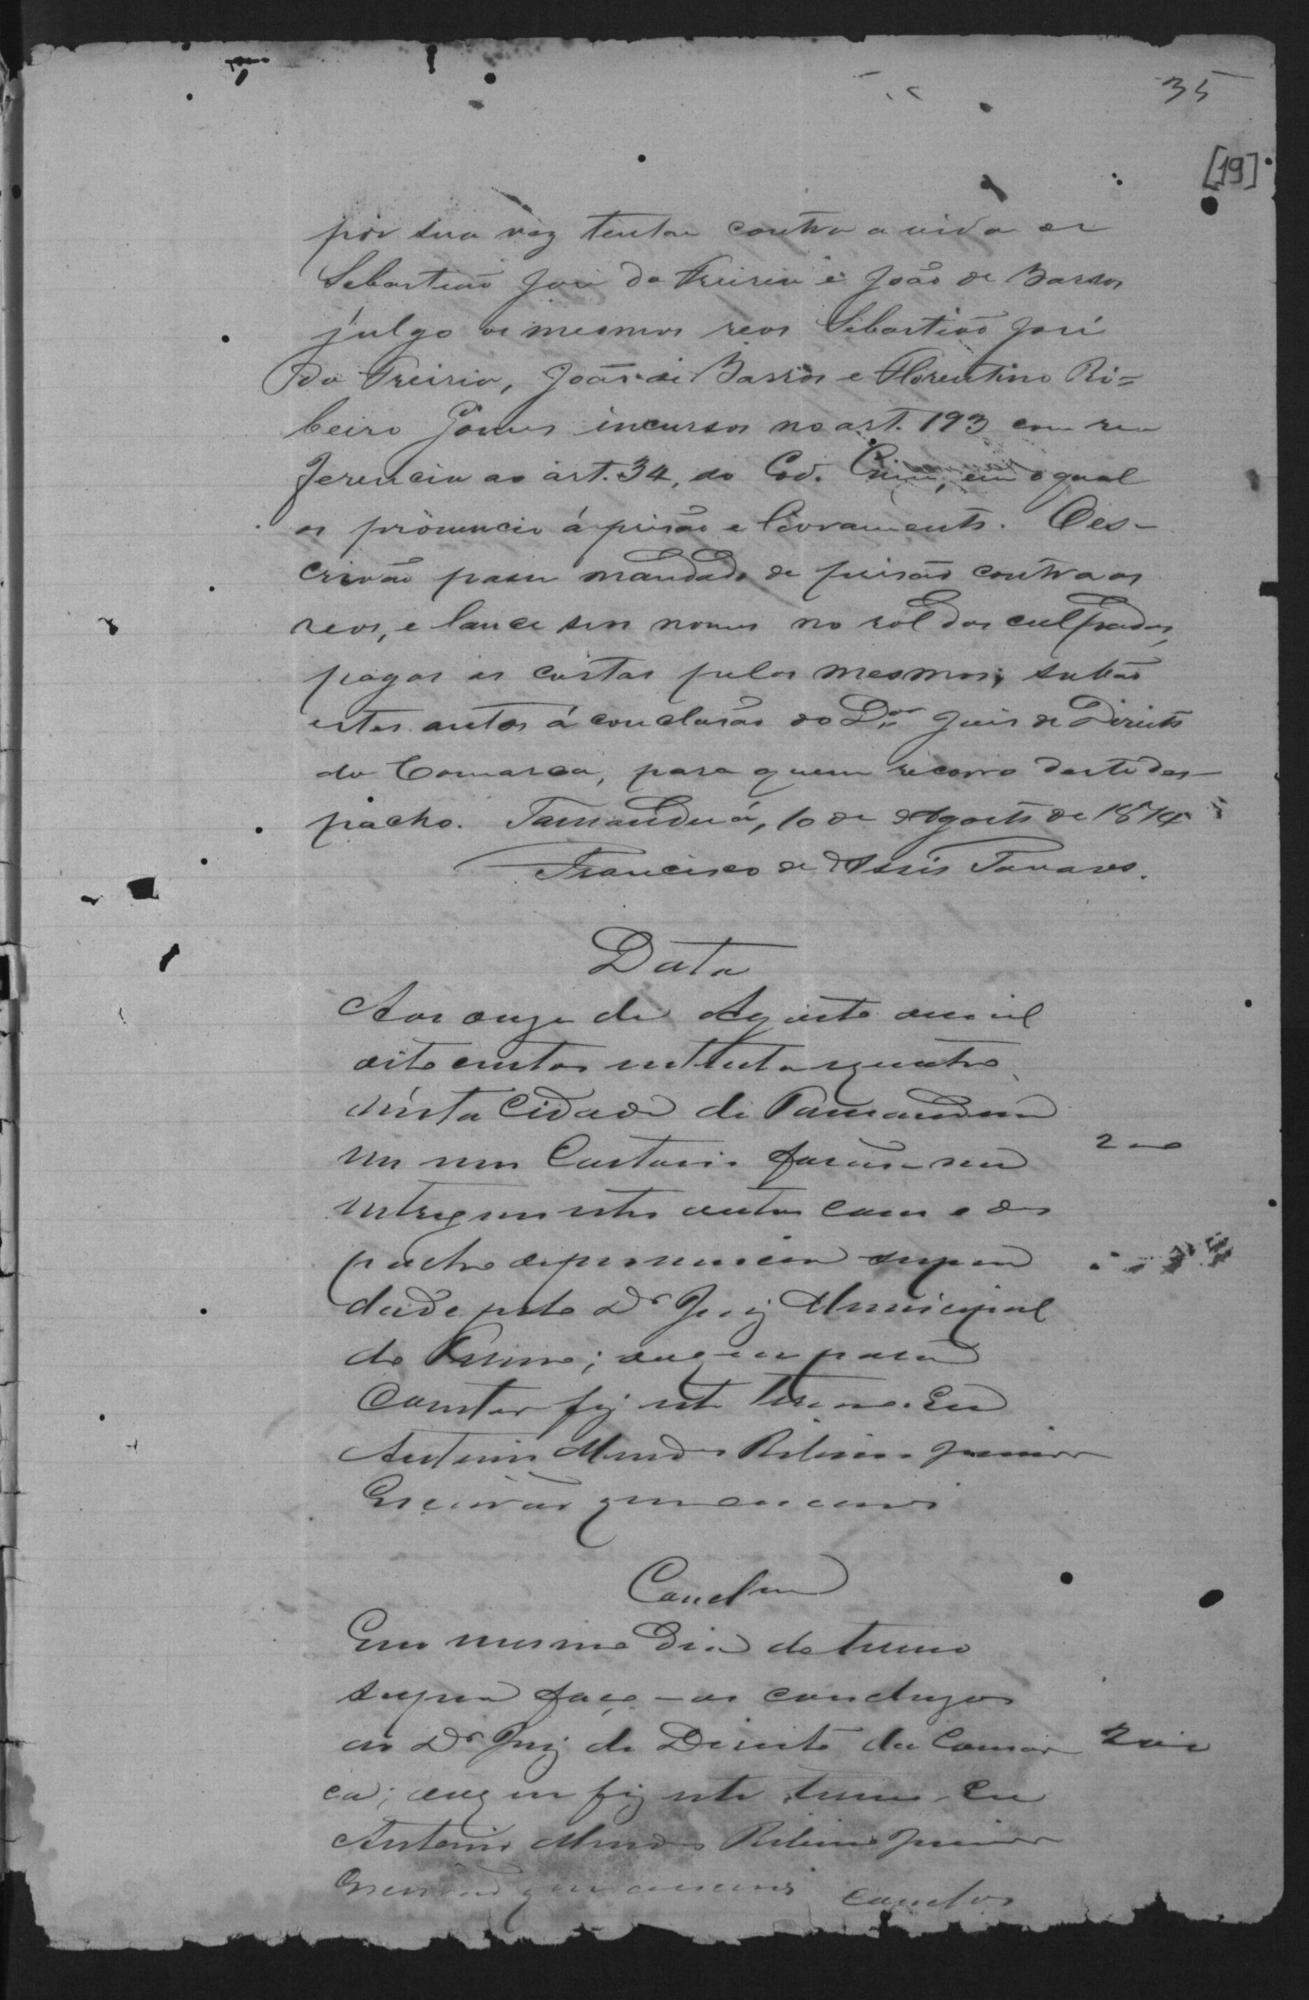 35
[19]
por sua vez tentar contra a vida de
Sebastião José da Freiria e João de Barros
julgo os mesmos reos Sebastião José
da Freiria, João de Barros e Florentino Ri=
beiro Gomes incursos no art. 193 com re
ferencia ao art. 34, do Cod. Crim, em o qual
os pronuncio á prisão e livramento. O es-
crivão passe mandado de prisão contra os
reos, e lance seus nomes no rol dos culpados,
pagas as custas pelos mesmos; subão
estes autos á conclusão do Dor Juis de Direito
da Comarca, para quem recorro deste des-
pacho. Tamanduá, 10 de Agosto de 1874
Francisco de Assis Tavares.
Data
Aos onze de Agosto de mil
oito centos setenta e quatro
nesta Cidade de Tamanduá
em meu Cartorio forão me
entregues estes autos com o des
pacho de pronuncia supra
dado pelo Dr Juiz Municipal
do Termo; do que para
constar fiz este termo. Eu
Antonio Mendes Ribeiro Junior
Escrivão que escrevi
200
Em mesmo dia do termo
supra faço-os conclusos
ao Dr Juiz de Direito da Comar
ca; do que fiz este termo. Eu
Antonio Mendes Ribeiro Junior
Escrivão que escrevi